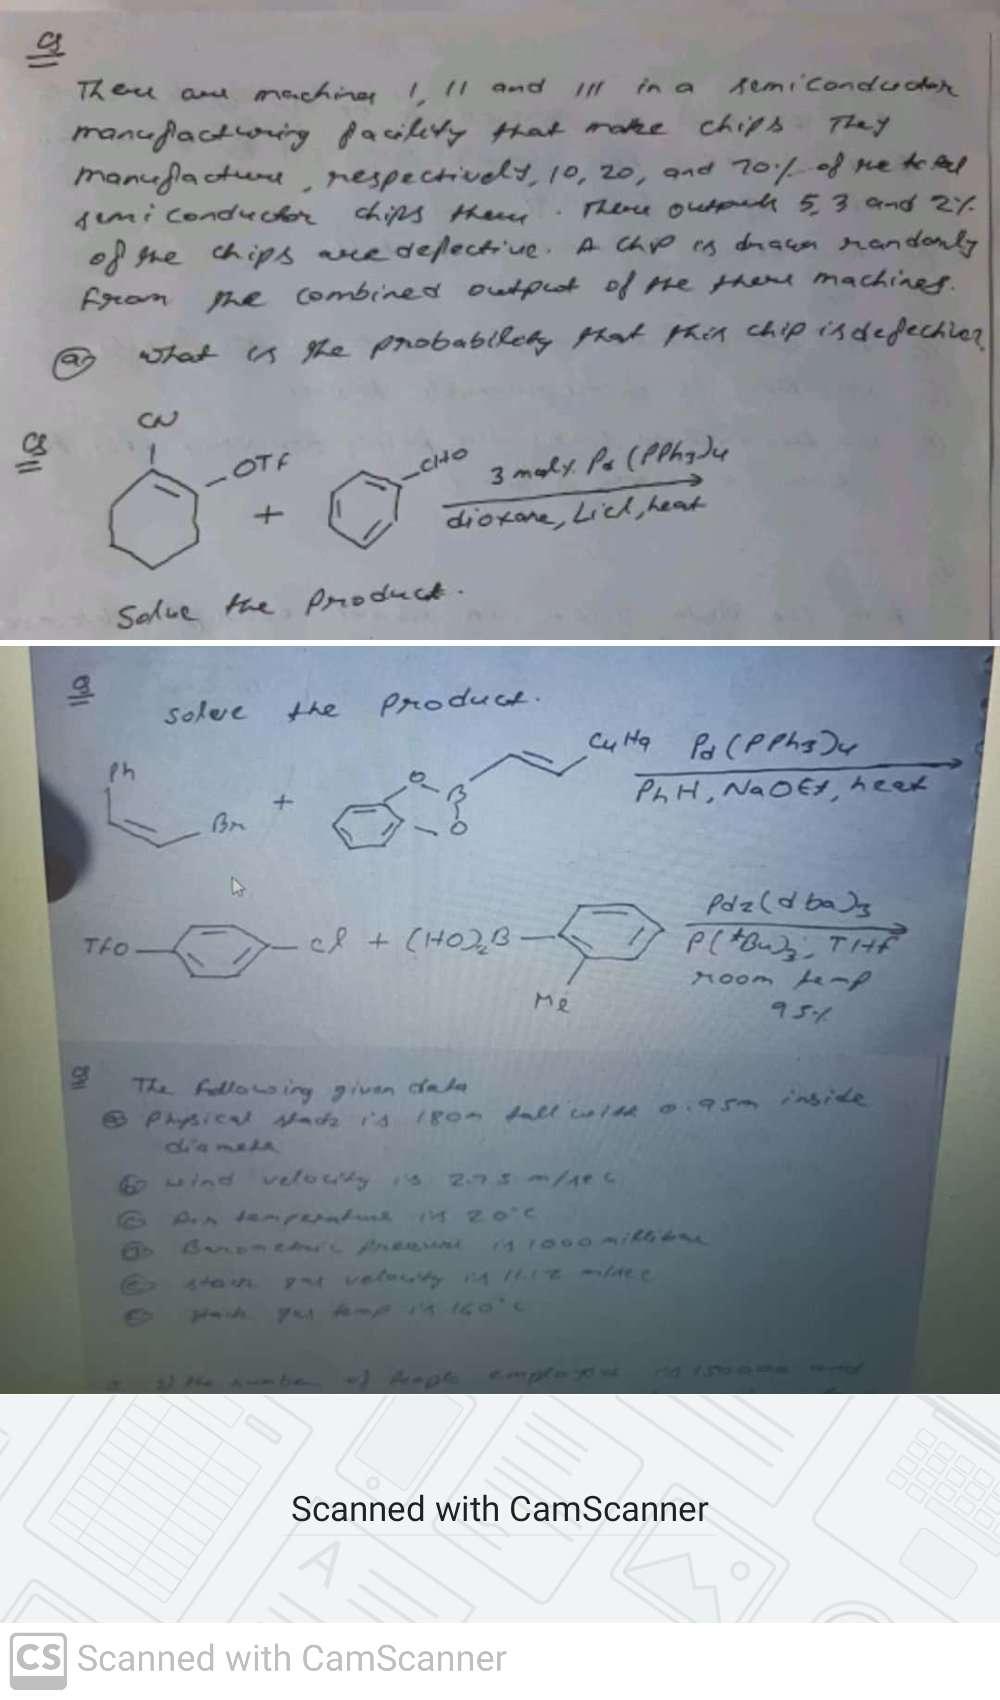 Q
There are machines I, II and III in a semiconductor
manufacturing facility that make chips. They
manufacture, respectively, 10, 20, and 70% of the total
semiconductor chips there. There outputs 5, 3 and 2%
of the chips are defective. A chip is drawn randomly
from the combined output of the there machines.
(a) what is the probability that this chip is defective?
Q
CN
OTf
+
CHO
3 mol% Pd (PPh3)4
dioxane, LiCl, heat
Solve the product.
Q
solve the product.
Ph
Br
+
O
B
O
C4H9
Pd (PPh3)4
PhH, NaOEt, heat
TfO
Cl + (HO)2B
Me
Pd2(dba)3
P(tBu)3, THF
room temp
95%
Q
The following given data
(a) Physical stack is 180m tall with 0.95m inside
diameter
(b) wind velocity is 2.75 m/sec
(c) Air temperature is 20°C
(d) Barometric pressure is 1000 millibar
(e) stack gas velocity is 11.12 m/sec
(f) stack gas temp is 160°C
the number of people employed is 150000 and
Scanned with CamScanner
CS Scanned with CamScanner